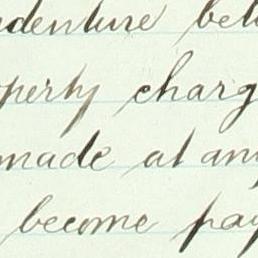 ndenture bet
perty charg
made at any
become pay